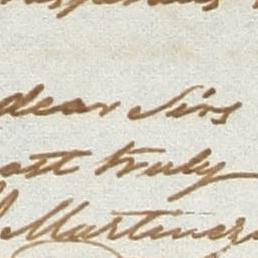 dear Sirs
ost truly
Martinez